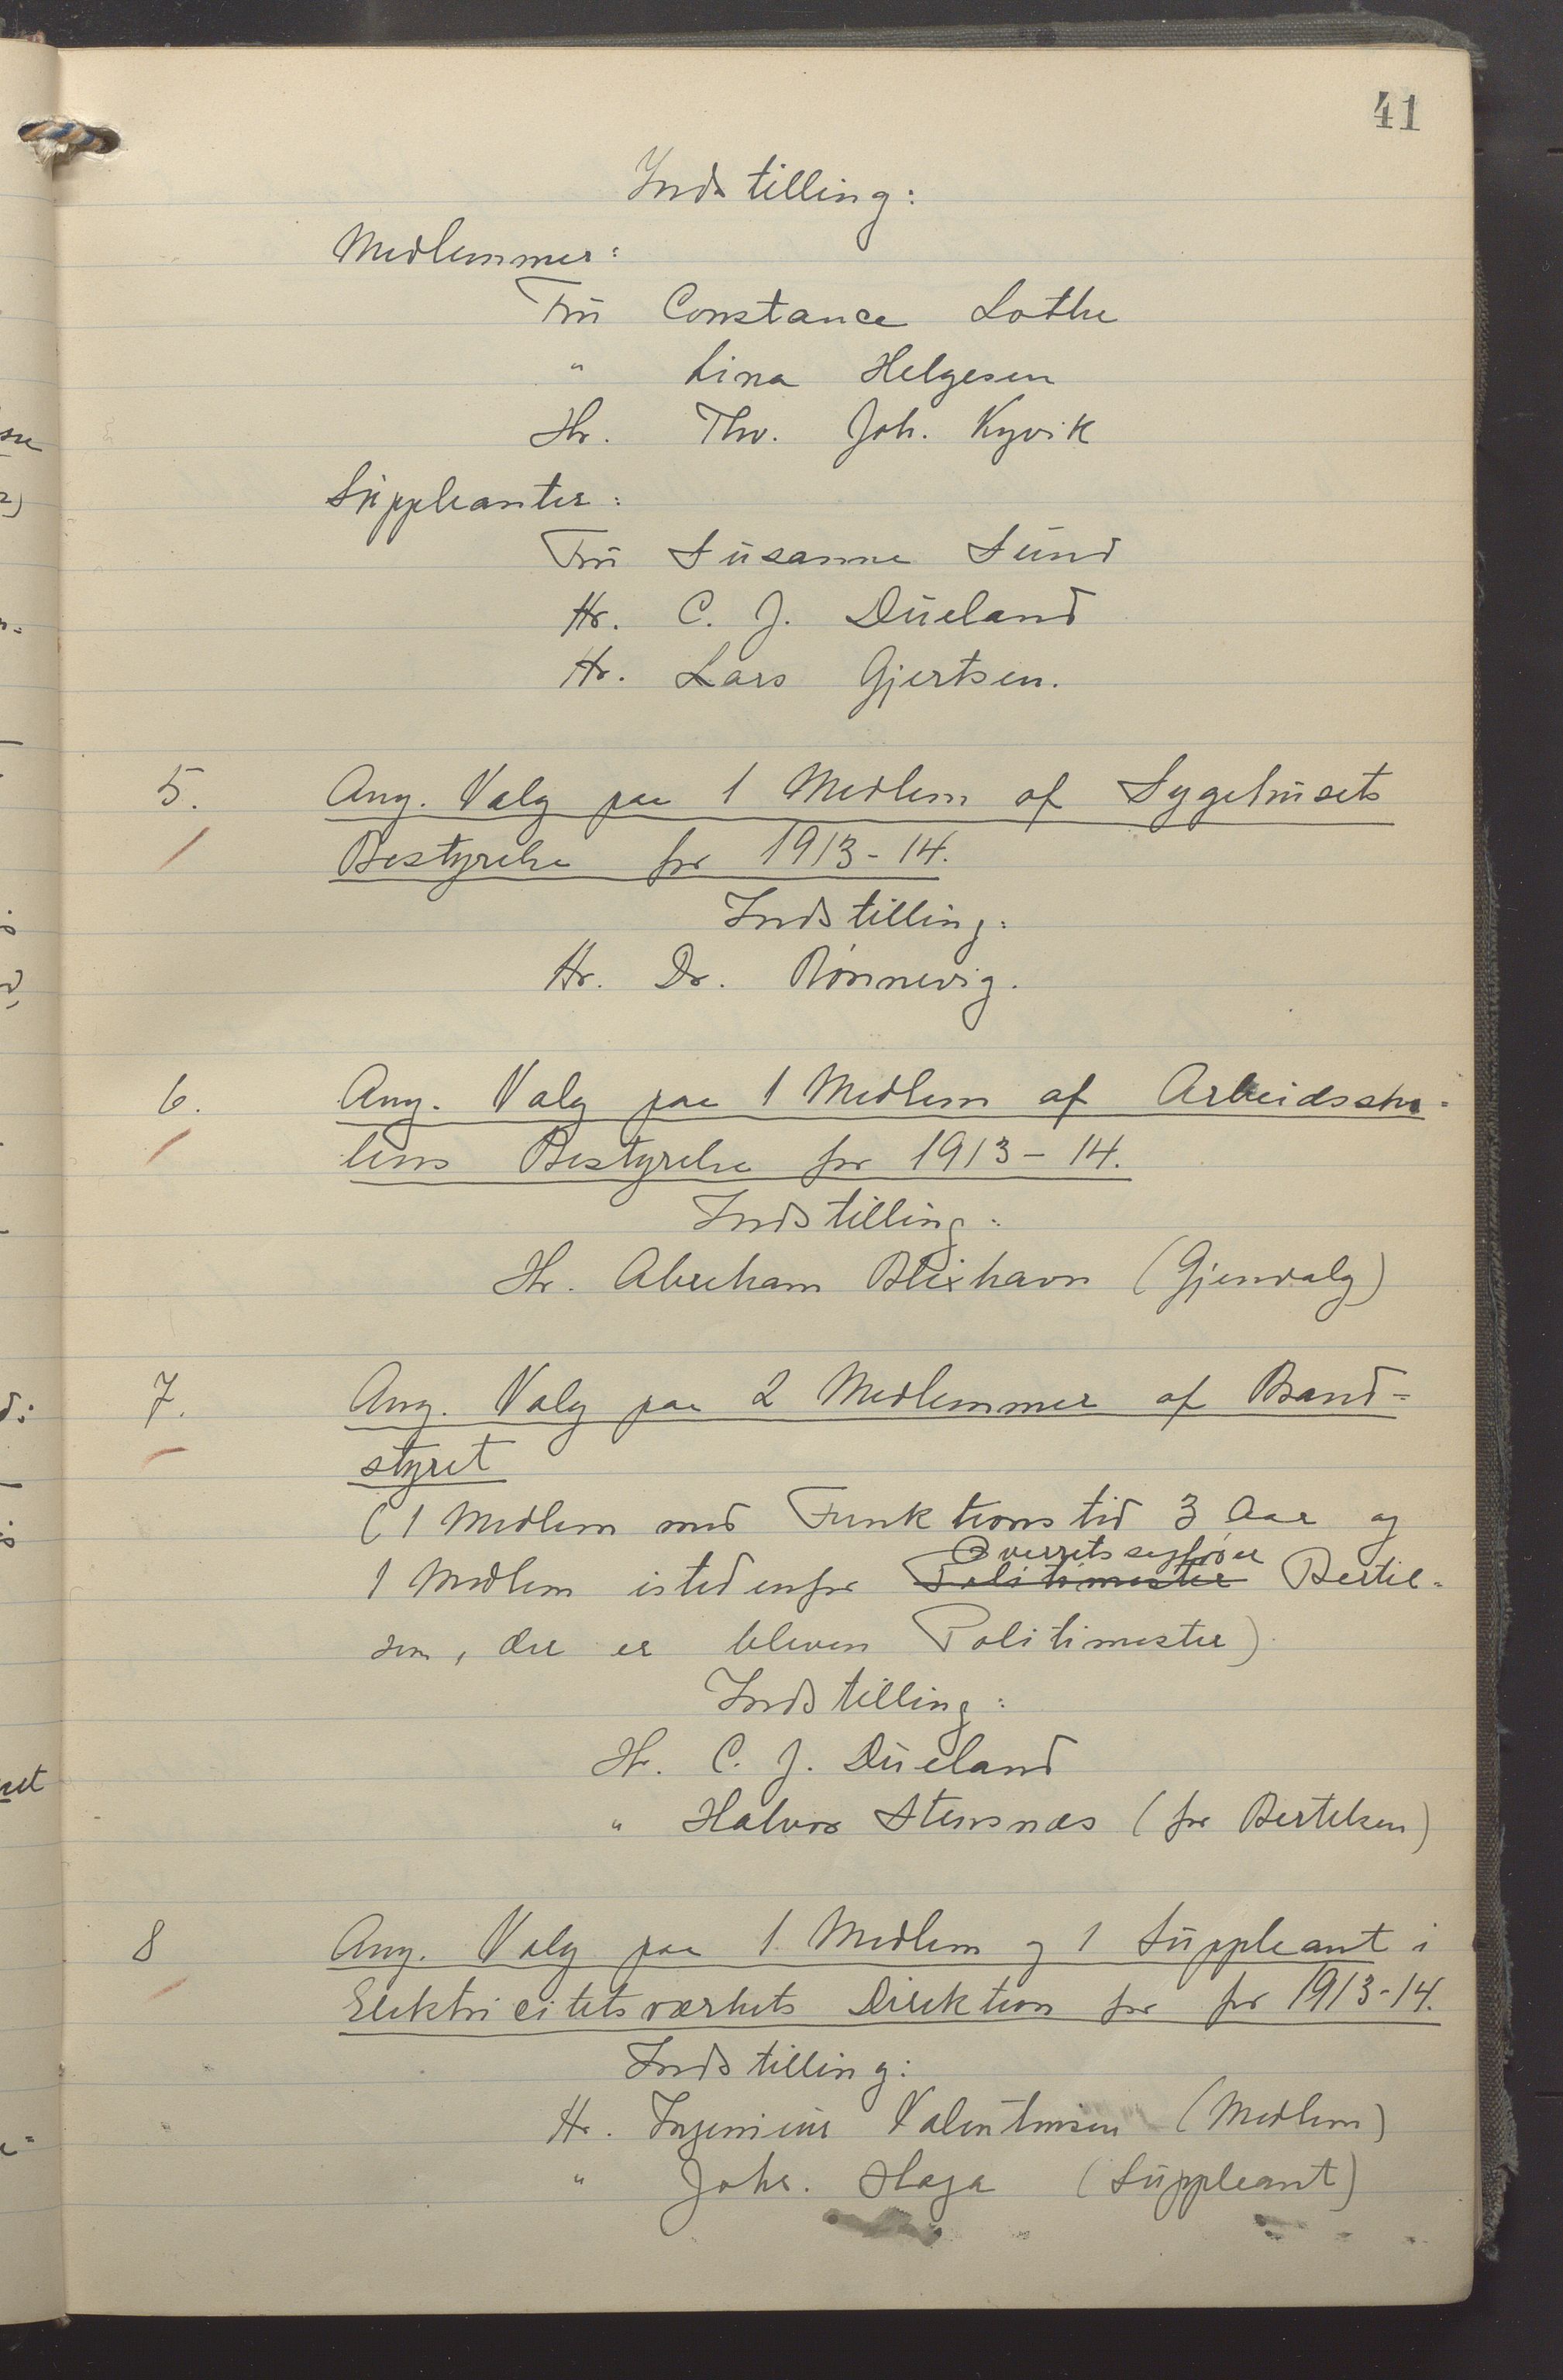 41
Indstilling:
Medlemmer:
Fru Constance Lothe
" Lina Helgesen
Hr. Thv. Joh. Kyvik
Suppleanter:
Fru Susanne Sund
Hr. C. J. Dueland
Hr. Lars Gjertsen.
5. Ang. Valg paa 1 Medlem af Sygehusets
Bestyrelse for 1913-14.
Indstilling:
Hr. Dr. Rønnevig.
6. Ang. Valg paa 1 Medlem af Arbeidssko-
lens Bestyrelse for 1913-14.
Indstilling:
Hr. Abraham Blixhavn (Gjenvalg)
7. Ang. Valg paa 2 Medlemmer af Brand-
styret
(1 Medlem med Funktionstid 3 Aar og
Overretssagfører
1 Medlem istedenfor Politimester Bertel-
sen, der er bleven Politimester)
Indstilling:
Hr. C. J. Dueland
" Halvor Stensnæs (for Bertelsen)
8 Ang. Valg paa 1 Medlem og 1 Suppleant i
Elektricitetsværkets Direktion for for 1913-14.
Indstilling:
Hr. Ingeniør Valentinsen (Medlem)
" Johs. Haga (Suppleant)